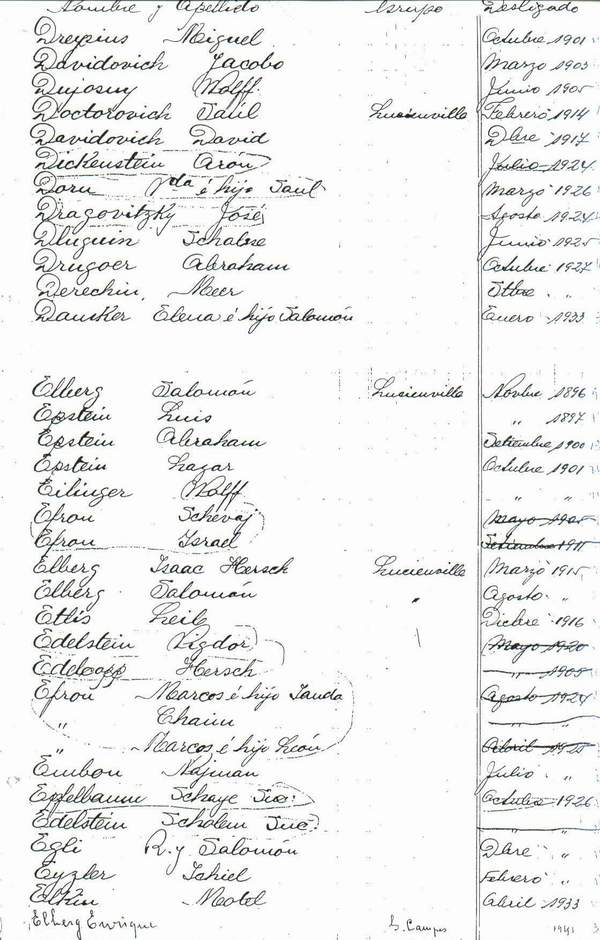 Nombre y Apellido Grupo Desligado
Dreyzius Miguel Octubre 1901
Davidovich Jacobo Marzo 1903
Dujosuy Wolff Junio 1905
Doctorovich Saúl Lucienville Febrero 1914
Davidovich David Dbre 1917
Dickenstein Aron Julio 1924
Dorn Vda é hijo Saul Marzo 1926
Dragovitzky José Agosto 1924
Dluguin Schabse Junio 1925
Drugoer Abraham Octubre 1927
Derechin, Meer Stbre "
Dansker Elena é hijo Salomón Enero 1933
Elberg Salomón Lucienville Novbre 1896
Epstein Luis " 1897
Epstein Abraham Setiembre 1900
Epstein Lazar Octubre 1901
Eilinger Wolff " "
Efron Schevaj Mayo 1905
Efron Israel Setiembre 1911
Elberg Isaac Hersch Lucienville Marzo 1915
Elberg Salomón " Agosto "
Etlis Leib Dicbre 1916
Edelstein Vigdor Mayo 1920
Edelcopp Hersch " 1905
Efron Marcos é hijo Janda Agosto 1924
" Chaim "
" Marcos é hijo León Abril 1925
Embon Najman Julio "
Epfelbaum Schaye Suc. Octubre 1926
Edelstein Scholem Suc. " "
Egli R. y Salomón Dbre "
Eyzler Ichiel Febrero "
Elkin Motel Abril 1933
Elberg Enrique S. Campos 1941